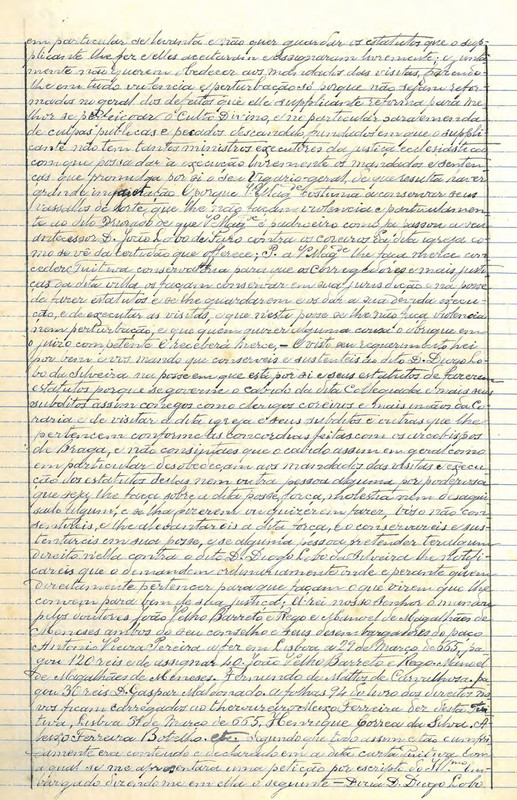 em particular se levanta e não quer guardar os estatutos que o sup-
plicante lhe fez e elles aceitaram e assignaram livremente; e junta-
mente não querem obedecer aos mandados das visitas, fazendo-
lhe em tudo violencia e perturbação só porque não sejam refor-
mados no geral dos defeitos que elle supplicante reforma para me-
lhor se aperfeiçoar o Culto Divino, e no particular para emenda
de culpas publicas e peccados descandalo, fundados em que o suppli-
cante não tem tantos ministros executores da justiça ecclesiastica
com que possa dar á execução livremente os mandados e senten-
ças que promulga por si e seu Vigario-geral, de que resulta haver
grande E porque V. Mag.de costuma a conservar seus
vassallos de sorte, que lhe não façam violencia e particularmen-
te ao dito Dioguo de que V. Mag.de é padroeiro como já passou a seu
antecessor D. João Lobo de Faro contra os coreiros da dita igreja co-
mo se vê da certidão que offerece; P. a V. Mag.de lhe faça mercê con-
ceder Tuitiva conservatoria para que os Corregedores e mais justi-
ças da dita villa os façam conservar em sua jurisdicção e na posse
de fazer estatutos e se lhe guardarem e os dar a sua devida execu-
ção, e de executar as visitas, e que nesta posse se lhe não faça violencia
nem perturbação, e que quem quizer alguma cousa o obrigue em
o juizo competente E receberá mercê, — E visto seu requerimento hei
por bem e vos mando que conserveis e sustenteis ao dito D. Diogo Lo-
bo da Silveira na posse em que está por si e seus estatutos de fazerem
estatutos porque se governe o cabido da dita Collegiada e mais seus
subditos assim conegos como clerigos coreiros e mais
e de visitar a dita igreja e seus subditos e outras que lhe
pertencem conforme as concordias feitas com os arcebispos
de Braga, e não consintaes que o cabido assim em geral como
em particular desobedeçam aos mandados das visitas e execu-
ção dos estatutos dellas nem outra pessoa alguma por poderosa
que seja lhe faça sobre a dita posse, força, molestia nem desaqui-
sado algum, e se lha fizerem ou quizerem fazer, vós o não con-
sentireis, e lhe alevantareis a dita força, e o conservareis e sus-
tentareis em sua posse, e se alguma pessoa pretender ter algum
direito nella contra o dito D. Diogo Lobo da Silveira lhe notifi-
careis que o demandem ordinariamente onde e perante quem
direitamente pertencer para que façam o que virem que lhe
convem para bem de sua justiça; El-rei nosso senhor o mandou
pelos doutores João Velho Barreto e Rego e Manoel de Magalhães de
Meneses ambos do seu conselho e seus desembargadores do paço
Antonio Vieira Pereira a fez em Lisboa a 27 de Março de 665, pa-
gou 120 reis e de assignar 40. João Velho Barreto e Rego. Manoel
de Magalhães de Meneses. Fernando de Mattos de Carvalhosa. pa-
gou 30 reis D. Gaspar Maldonado. A folhas 94 do livro dos direitos no-
vos ficam carregados ao thesoureiro Aleixo Ferreira dez desta Tui-
tiva, Lisboa 31 de Março de 665. Henrique Correa da Silva. A-
leixo Ferreira Botelho. Segundo que tudo assim e tão cumpri-
damente era contiudo e declarado em a dita carta tuitiva com
a qual se me apresentara uma petição por escripto do Ill.mo Em-
bargado dizendo-me em ella o seguinte — Dizia D. Diogo Lobo